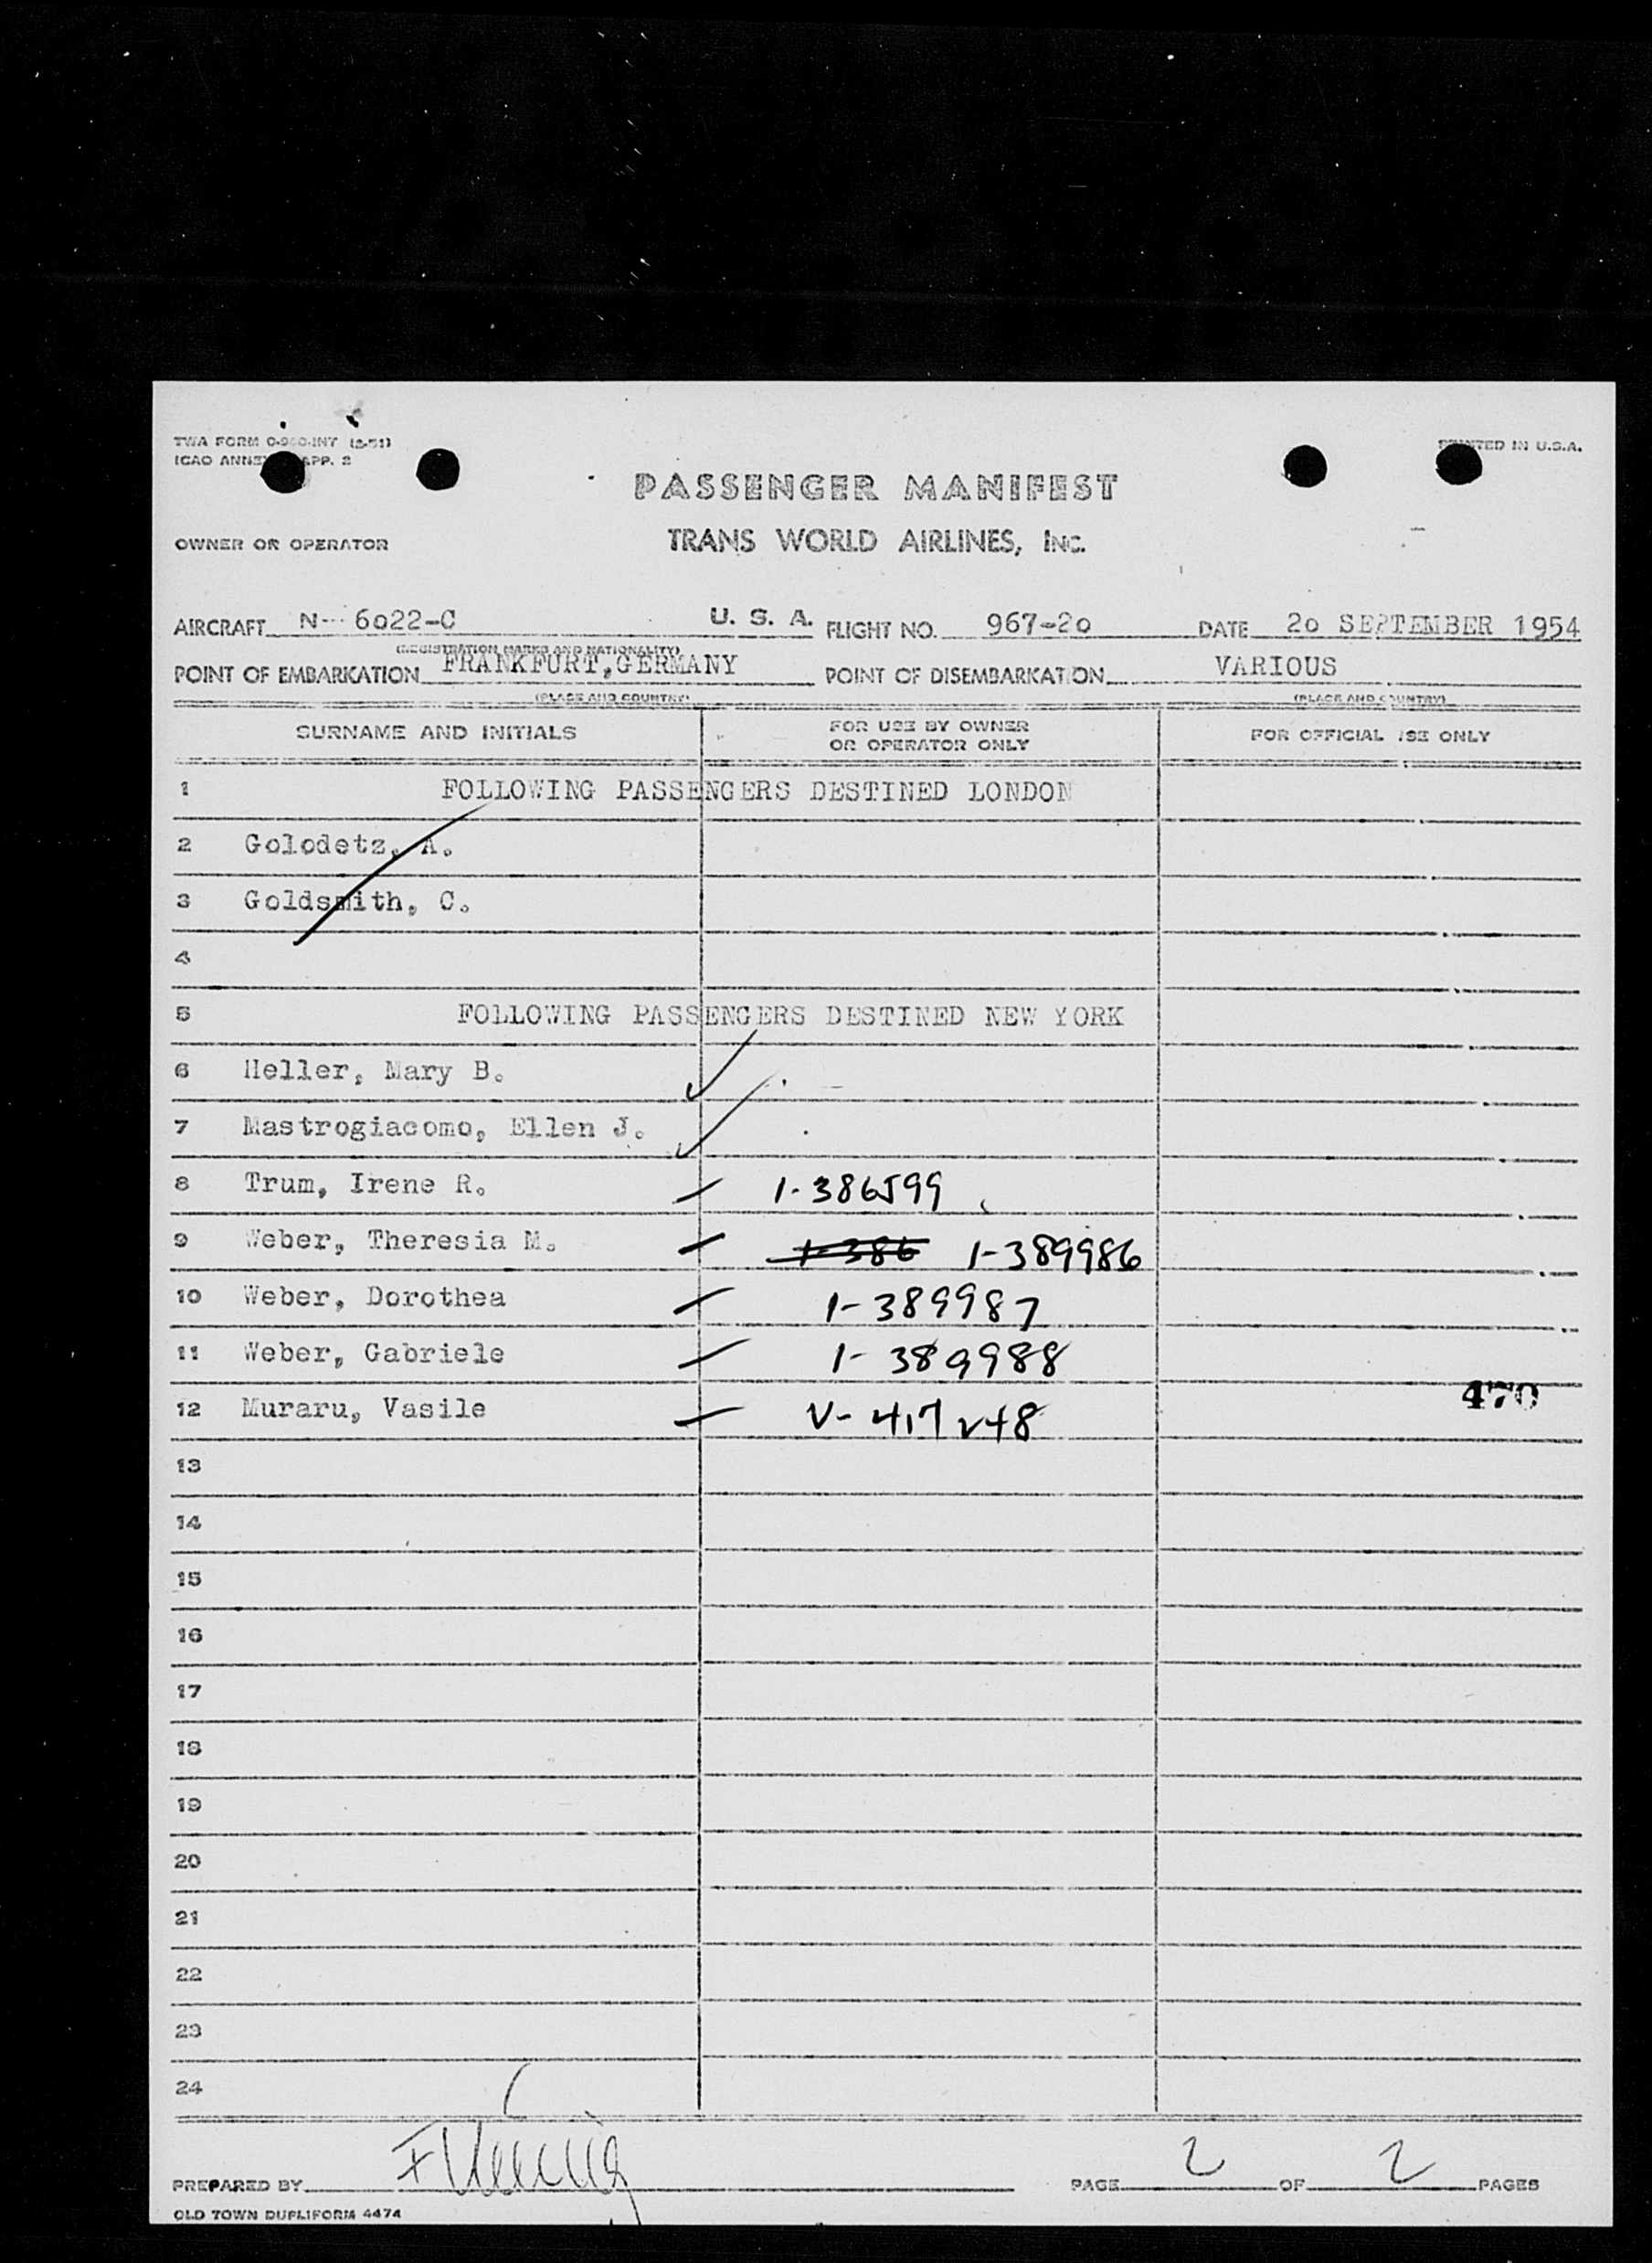 TWA FORM
ICAO ANNEX APP. 2
PRINTED IN U.S.A.
PASSENGER MANIFEST
OWNER OR OPERATOR TRANS WORLD AIRLINES, INC.
AIRCRAFT N- 6022-C U. S. A. FLIGHT NO. 967-20 DATE 20 SEPTEMBER 1954
(REGISTRATION MARKS AND NATIONALITY)
POINT OF EMBARKATION FRANKFURT, GERMANY POINT OF DISEMBARKATION VARIOUS
(PLACE AND COUNTRY) (PLACE AND COUNTRY)
SURNAME AND INITIALS FOR USE BY OWNER OR OPERATOR ONLY FOR OFFICIAL USE ONLY
1 FOLLOWING PASSENGERS DESTINED LONDON
2 Golodetz, A.
3 Goldsmith, C.
4
5 FOLLOWING PASSENGERS DESTINED NEW YORK
6 Heller, Mary B.
7 Mastrogiacomo, Ellen J.
8 Trum, Irene R. 1-386599
9 Weber, Theresia M. 1-386 1-389986
10 Weber, Dorothea 1-389987
11 Weber, Gabriele 1-389988
470
12 Muraru, Vasile V-417248
13
14
15
16
17
18
19
20
21
22
23
24
PREPARED BY PAGE 2 OF 2 PAGES
OLD TOWN DUPLIFORM 4474